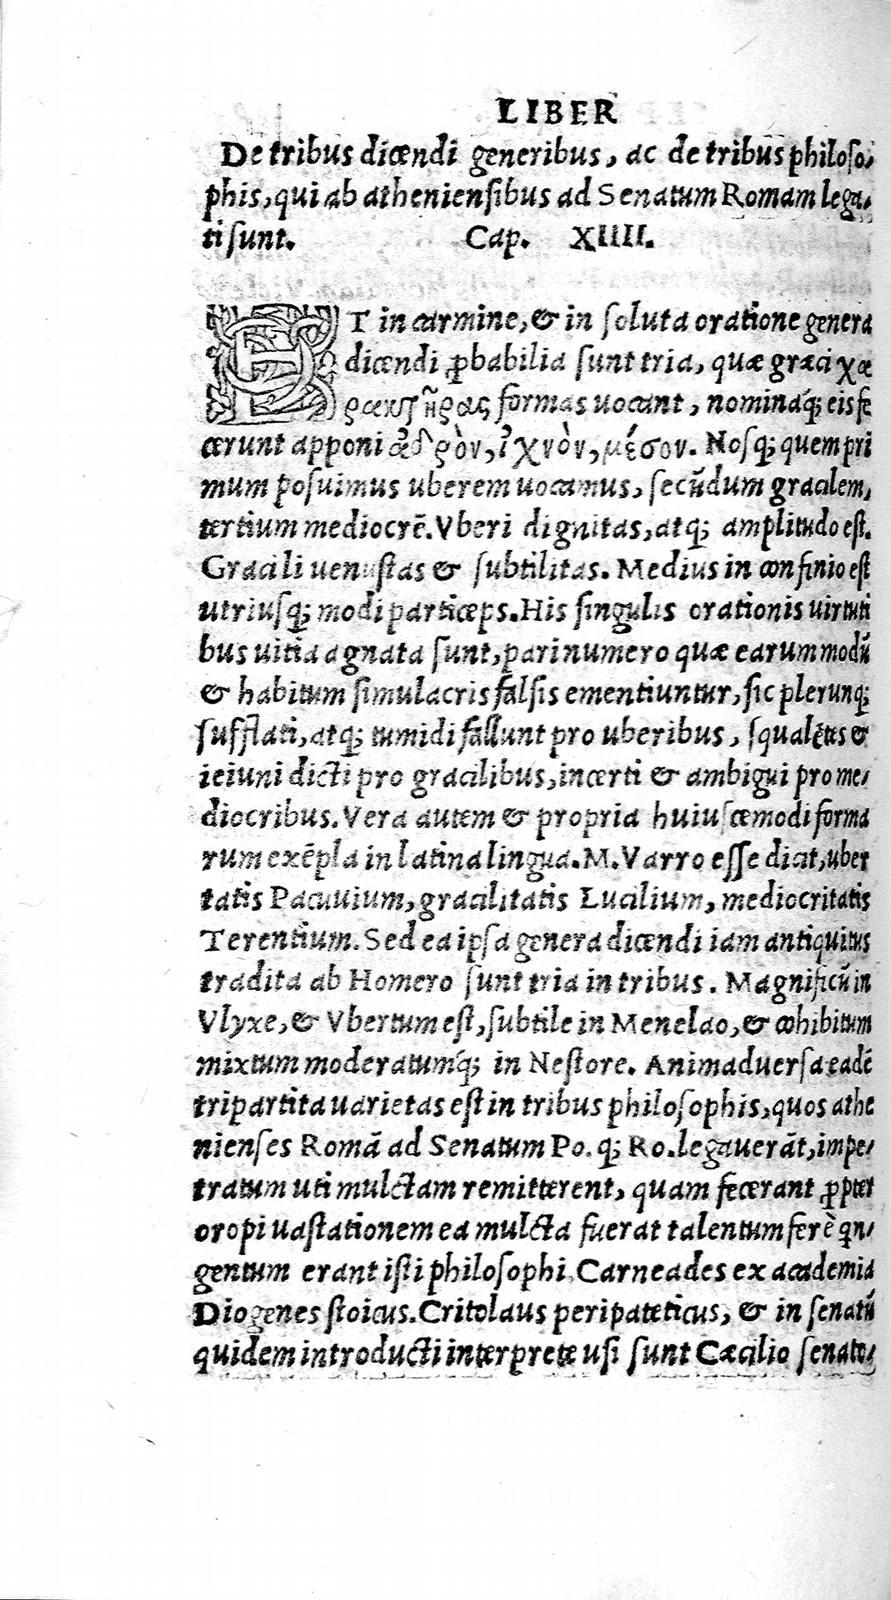 LIBER
De tribus dicendi generibus, ac de tribus philoso/
phis, qui ab atheniensibus ad Senatum Romam lega/
ti sunt. Cap. XIIII.
ET in carmine, & in soluta oratione genera
dicendi ꝓbabilia sunt tria, quæ græci χα
ρακτῆρας formas uocant, nomináq; eis fe
cerunt apponi ἁδρὸν, ἰχνὸν, μέσον. Nosq; quem pri
mum posuimus uberem uocamus, secũdum gracilem,
tertium mediocrẽ. Vberi dignitas, atq; amplitudo est.
Gracili uenustas & subtilitas. Medius in confinio est
utriusq; modi particeps. His singulis orationis uirtuti
bus uitia agnata sunt, pari numero quæ earum modũ
& habitum simulacris falsis ementiuntur, sic plerunq;
sufflati, atq; tumidi fallunt pro uberibus, squalẽtes &
ieiuni dicti pro gracilibus, incerti & ambigui pro me/
diocribus. Vera autem & propria huiuscemodi forma
rum exẽpla in latina lingua. M. Varro esse dicit, uber
tatis Pacuuium, gracilitatis Lucilium, mediocritatis
Terentium. Sed ea ipsa genera dicendi iam antiquitus
tradita ab Homero sunt tria in tribus. Magnificũ in
Vlyxe, & Vbertum est, subtile in Menelao, & cohibitum
mixtum moderatumq́; in Nestore. Animaduersa eadẽ
tripartita uarietas est in tribus philosophis, quos athe
nienses Romã ad Senatum Po. q; Ro. legauerãt, impe/
tratum uti mulctam remitterent, quam fecerant ꝓpter
oropi uastationem ea mulcta fuerat talentum ferè qn/
gentum erant isti philosophi. Carneades ex academia
Diogenes stoicus. Critolaus peripateticus, & in senatũ
quidem introducti interprete usi sunt Cæcilio senato/